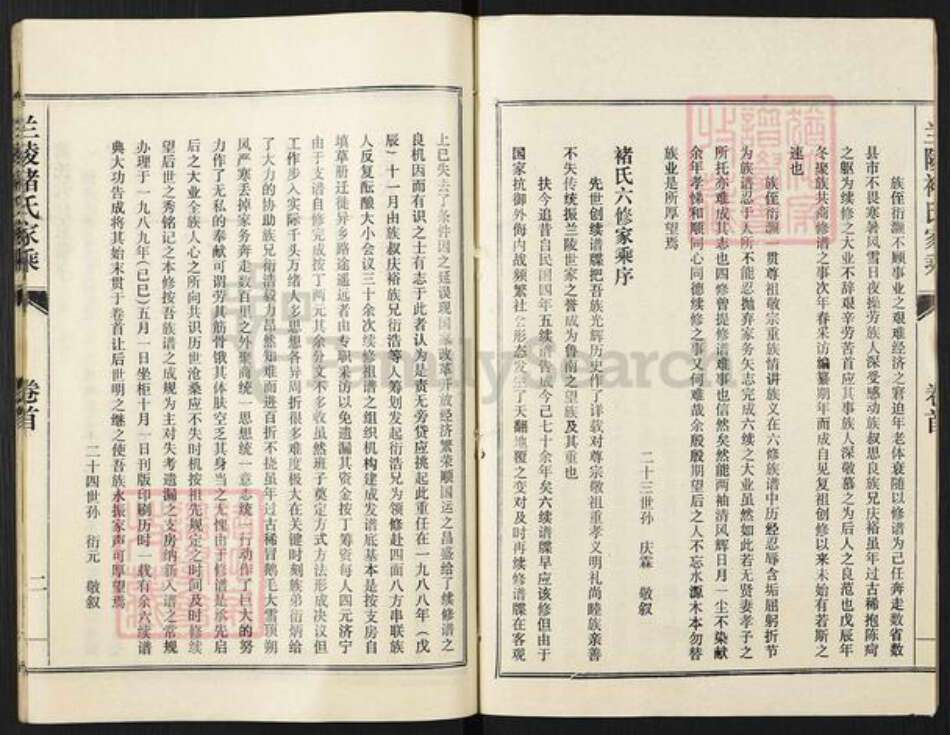 族侄衍灏不顾事业之艰难经济之窘迫年老体衰随以修谱为己任奔走数省数
县市不畏寒暑风雪日夜操劳族人深受感动族叔思良族兄庆裕虽年过古稀抱陈疴
之躯为续修之大业不辞艰辛劳苦首应其事族人深敬慕之为后人之良范也戊辰年
冬聚族共商修谱之事次年春采访编纂期年而成自见复祖创修以来未始有若斯之
速也
族侄衍灏一贯尊祖敬宗重族情讲族义在六修族谱中历经忍辱含垢屈躬折节
为族谱忍于人所不能忍抛弃家务矢志完成六续之大业虽然如此若无贤妻孝子之
所托亦难成其志也四修曾提修谱难事也信然矣然能两袖清风辉日月一尘不染献
余年孝悌和顺同心同德续修之事又何难哉余殷殷期望后之人不忘水源木本勿替
族业是所厚望焉
二十三世孙 庆霖 敬叙
褚氏六修家乘序
先世创续谱牒把吾族光辉历史作了详载对尊宗敬祖重孝义明礼尚睦族亲善
不失传统振兰陵世家之誉成为鲁南之望族及其重也
扶今追昔自民国四年五续谱告成今己七十余年矣六续谱牒早应该修但由于
国家抗御外侮内战频繁社会形态发生了天翻地覆之变对及时再续修谱牒在客观
兰陵褚氏家乘
卷首
上已失去了条件因之延误现国家改革开放经济繁荣顺国运之昌盛给了续修谱之
良机因而有识之士有志于此者认为是责无旁贷应挑起此重任在一九八八年（戊
辰）十一月由族叔庆裕族兄衍浩等人筹划发起衍浩兄为领修赴四面八方串联族
人反复酝酿大小会议三十余次续修祖谱之组织机构建成发谱底基本是按支房自
填草册迁徙异乡路途遥远者由专职采访以免遗漏其资金按丁筹资每人四元济宁
由于支谱自修完成按丁两元其余分文不多收虽然班子奠定方式方法形成决议但
工作步入实际千头万绪人多思想各异周折很多难度极大在关健时刻族弟衍炳给
了大力的协助族兄衍浩毅力昂然知难而进百折不挠虽年过古稀冒鹅毛大雪顶朔
风严寒丢掉家务奔走数百里之外聚商统一思想统一意志统一行动作了巨大的努
力作了无私的奉献可谓劳其筋骨饿其体肤空乏其身当之无愧由于修谱是承先启
后之大业全族人心之所向共识历世沧桑应不失时机按祖先规定之时间及时修续
望后世之秀铭记之本修按吾族谱之成规为主对失考遗漏之支房纳新入谱之常规
办理于一九八九年（已巳）五月一日坐柜十月一日刊版印刷历时一载有余六续谱
典大功告成将其始末贯于卷首让后世明之继之使吾族永振家声可厚望焉
二十四世孙 衍元 敬叙
兰陵褚氏家乘
卷首
二
FamilySearch